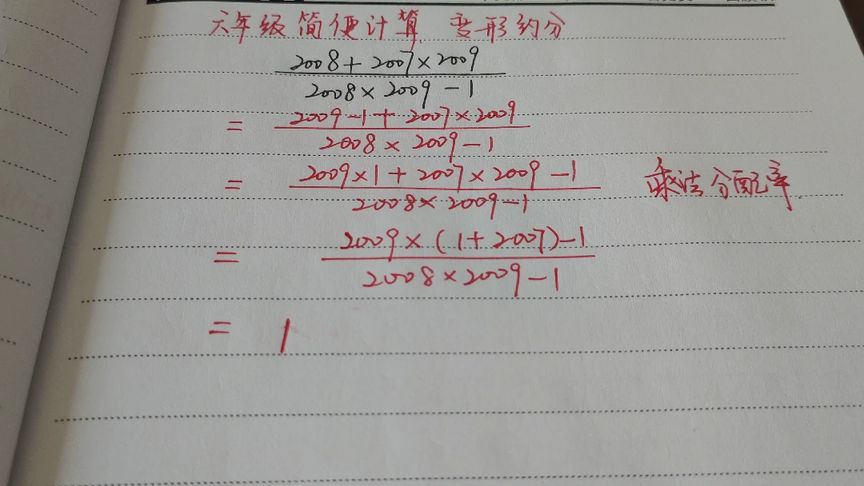 六年级简便计算 变形约分
2008+2007×2009
2008×2009-1
= 2009-1+2007×2009
2008×2009-1
= 2009×1+2007×2009-1 乘法分配率
2008×2009-1
= 2009×(1+2007)-1
2008×2009-1
= 1